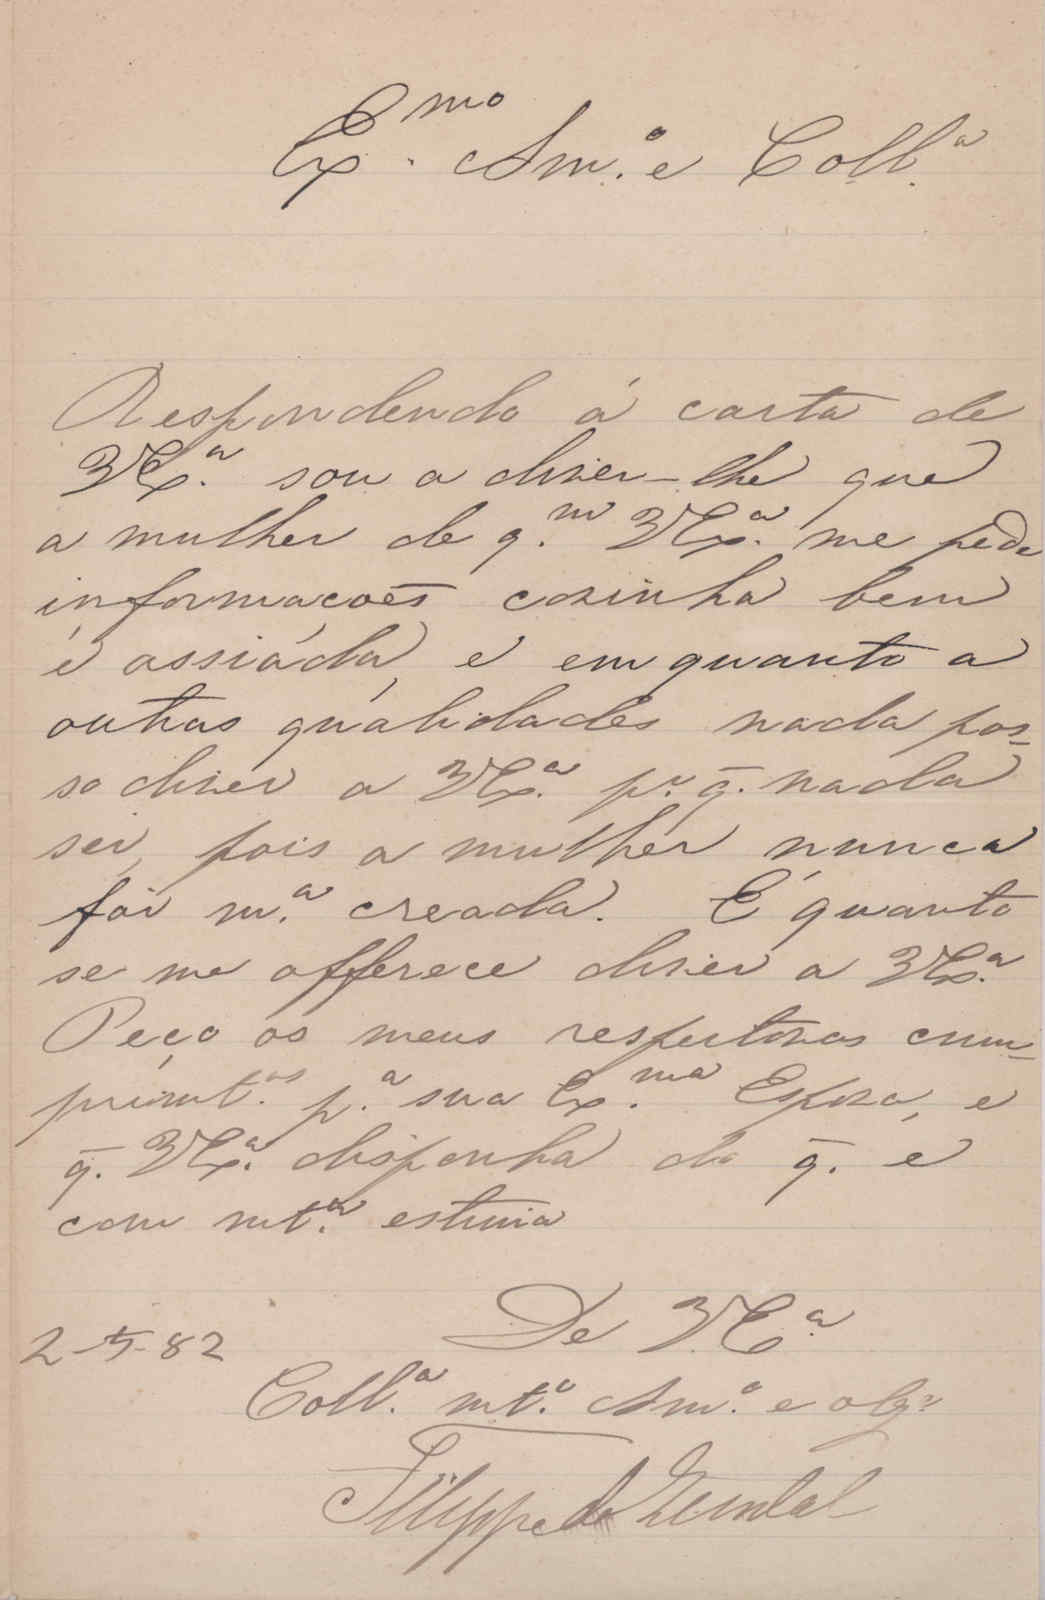 Ex.mo Am.o e Coll.a
Respondendo á carta de
V Ex.a sou a dizer-lhe que
a mulher de q.m V Ex.a me pede
informacoēs cozinha bem
é assiáda, e em quanto a
outras qualidades nada pos-
so dizer a V Ex.a p.r q̄. nada
sei, pois a mulher nunca
foi m.a creada. É quanto
se me offerece dizer a V Ex.a
Peço os meus respeitosos cum-
primt.os p.a sua Ex.ma Esposa, e
q̄. V Ex.a disponha do q̄. é
com mt.a estima
De V. E.a
2-5-82
Coll.a mt.o Am.o e obg.o
Filippe do Quental